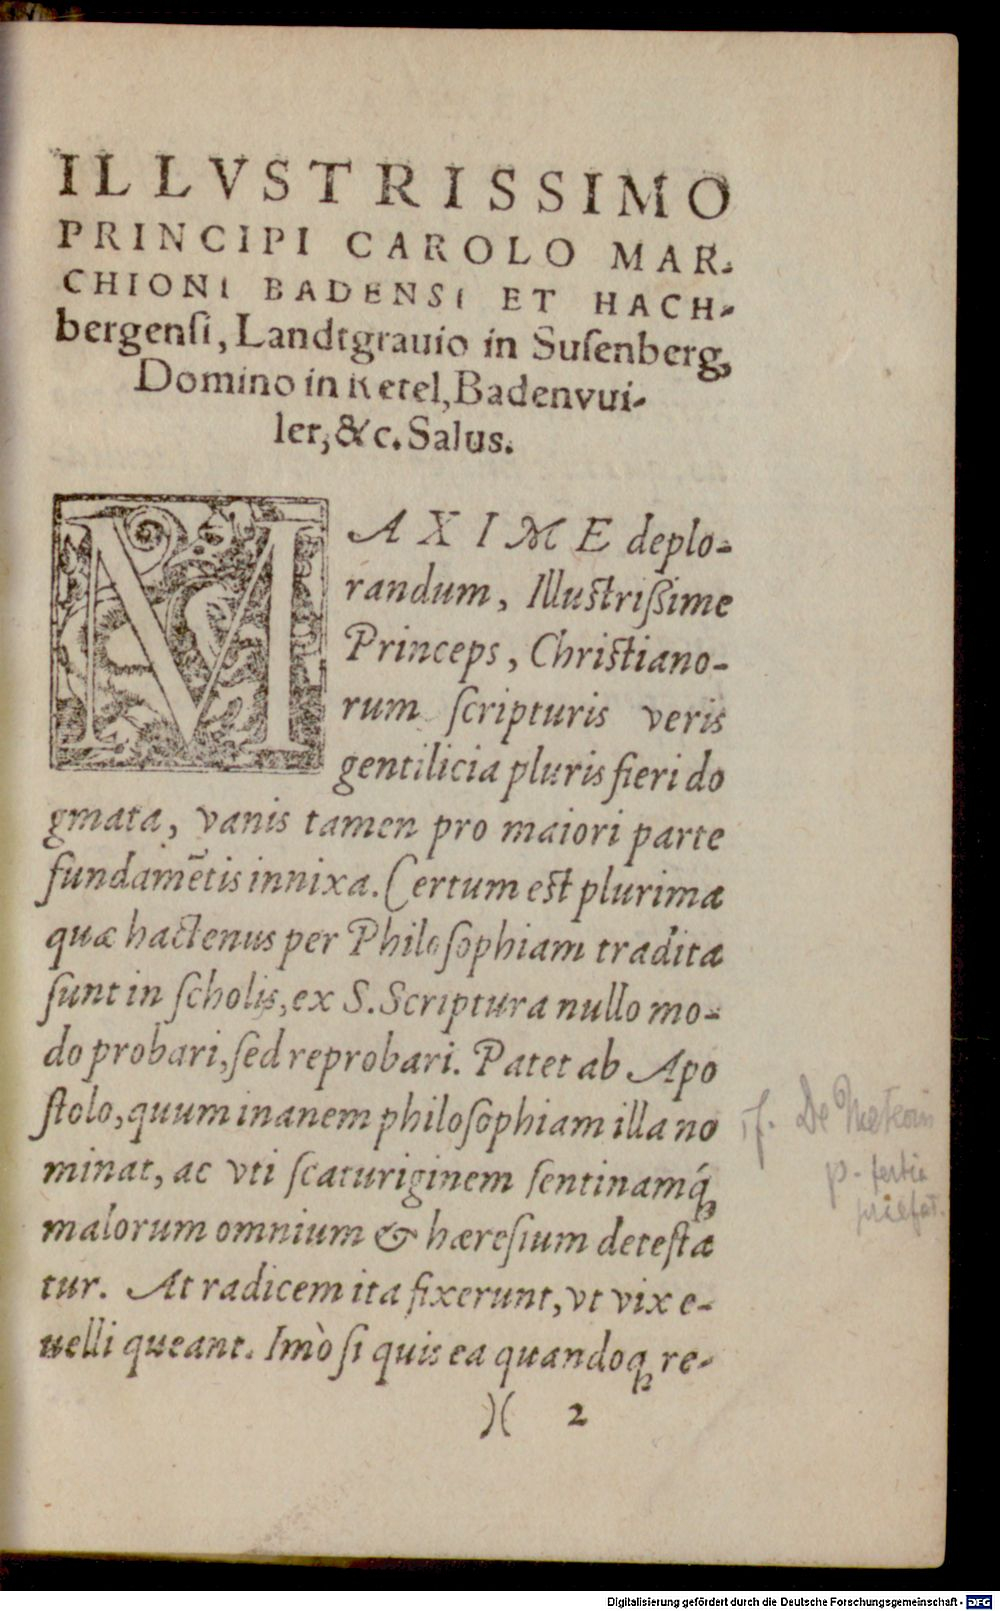 ILLVSTRISSIMO
PRINCIPI CAROLO MAR-
CHIONI BADENSI ET HACH-
bergenſi, Landtgrauio in Suſenberg,
Domino in Retel, Badenvui-
ler, &c. Salus.
MAXIME deplo-
randum, Illuſtriſſime
Princeps, Chriſtiano-
rum ſcripturis veris
gentilicia pluris fieri do
gmata, vanis tamen pro maiori parte
fundamẽtis innixa. Certum eſt plurima
quæ hactenus per Philoſophiam tradita
ſunt in ſcholis, ex S. Scriptura nullo mo-
do probari, ſed reprobari. Patet ab Apo
ſtolo, quum inanem philoſophiam illa no
minat, ac vti ſcaturiginem ſentinamq́;
malorum omnium & hæreſium deteſta
tur. At radicem ita fixerunt, vt vix e-
uelli queant. Imò ſi quis ea quandoq; re-
)( 2
f. De Meteoris
p. tertia
praefat.
Digitalisierung gefördert durch die Deutsche Forschungsgemeinschaft - DFG